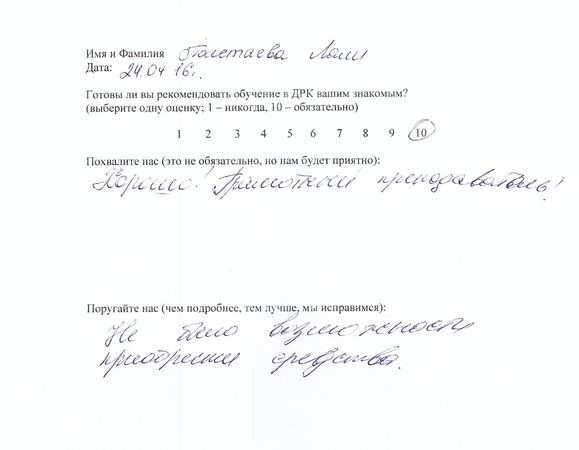 Имя и Фамилия Полетаева Лоли
Дата: 24.04.16г.
Готовы ли вы рекомендовать обучение в ДРК вашим знакомым?
(выберите одну оценку; 1 – никогда, 10 – обязательно)
1 2 3 4 5 6 7 8 9 10
Похвалите нас (это не обязательно, но нам будет приятно):
Хорошо! Грамотный преподаватель!
Поругайте нас (чем подробнее, тем лучше, мы исправимся):
Не было возможности
приобретения средства.